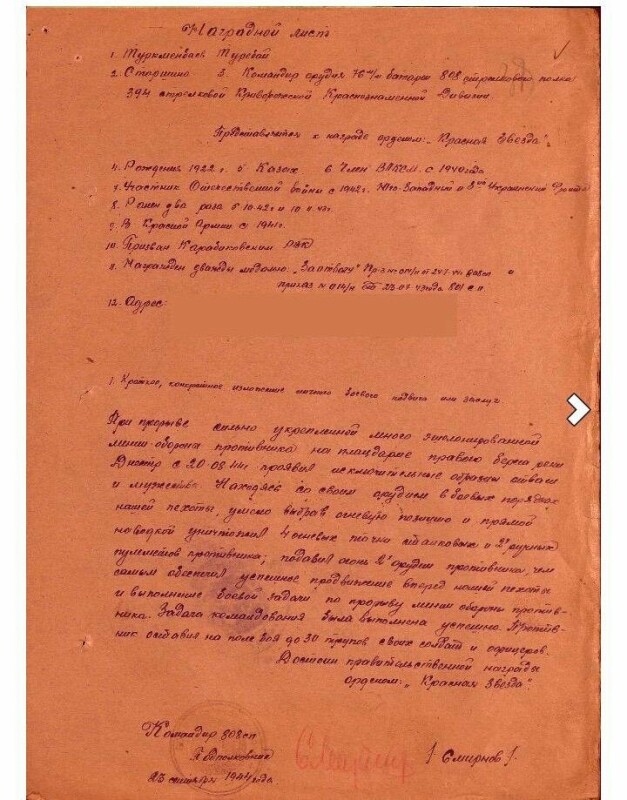 Наградной листъ
1. Туркменбаев Турсбай
2. Старшина 3. Командир орудия 76 м/м батареи 808 стрелкового полка
394 стрелковой Криворожской Краснознаменной Дивизии
Представляется к награде орденом: "Красная Звезда".
4. Рождения 1922 г. 5 Казах 6 Член ВЛКСМ. с 1940 года
7. Участник Отечественной войны с 1942 г. Юго-Западный и 3ий Украинский Фронты
8. Ранен два раза 5.10.42 г и 10.11.43 г.
9. В Красной Армии с 1941 г.
10. Призван РВК
11. Награжден дважды медалью: "За отвагу" 808 сп и
приказ № 014/н от 23.07.43 года 801 с.п.
12. Адрес:
1. Краткое, конкретное изложение личного боевого подвига или заслуг
При прорыве сильно укрепленной много эшелонированной
линии обороны противника на плацдарме правого берега реки
Днестр с 20.08.44 г. проявил исключительные образцы отваги
и мужества. Находясь со своим орудием в боевых порядках
нашей пехоты, умело выбрав огневую позицию и прямой
наводкой уничтожил 4 огневых точки станковых и 2х ручных
пулеметов противника; подавил огонь 2х орудий противника, чем
самым обеспечил успешное продвижение вперед нашей пехоты
и выполнение боевой задачи по прорыву линии обороны против-
ника. Задача командования была выполнена успешно. Против-
ник оставил на поле боя до 30 трупов своих солдат и офицеров.
Достоин правительственной награды
орденом: "Красная Звезда".
Командир 808 сп
Подполковник
/ Смирнов /.
23 сентября 1944 года